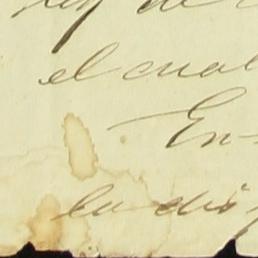 el cual
En
la dis